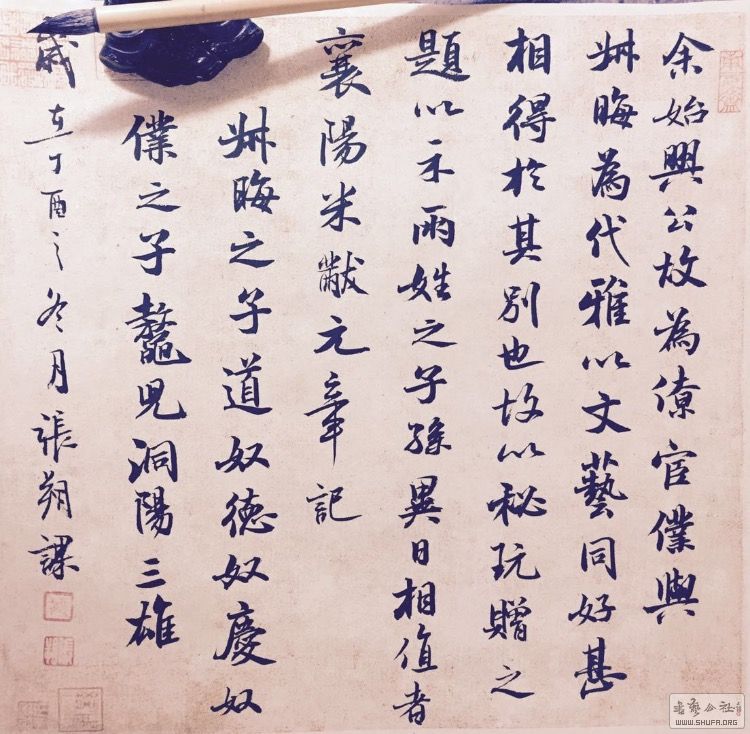 余始興公故為僚宦僕與
叔晦為代雅以文藝同好甚
相得於其別也故以秘玩贈之
題以示兩姓之子孫異日相值者
襄陽米黻元章記
叔晦之子道奴德奴慶奴
僕之子鼇兒洞陽三雄
歲在丁酉之冬月張朔課
WWW.SHUFA.ORG